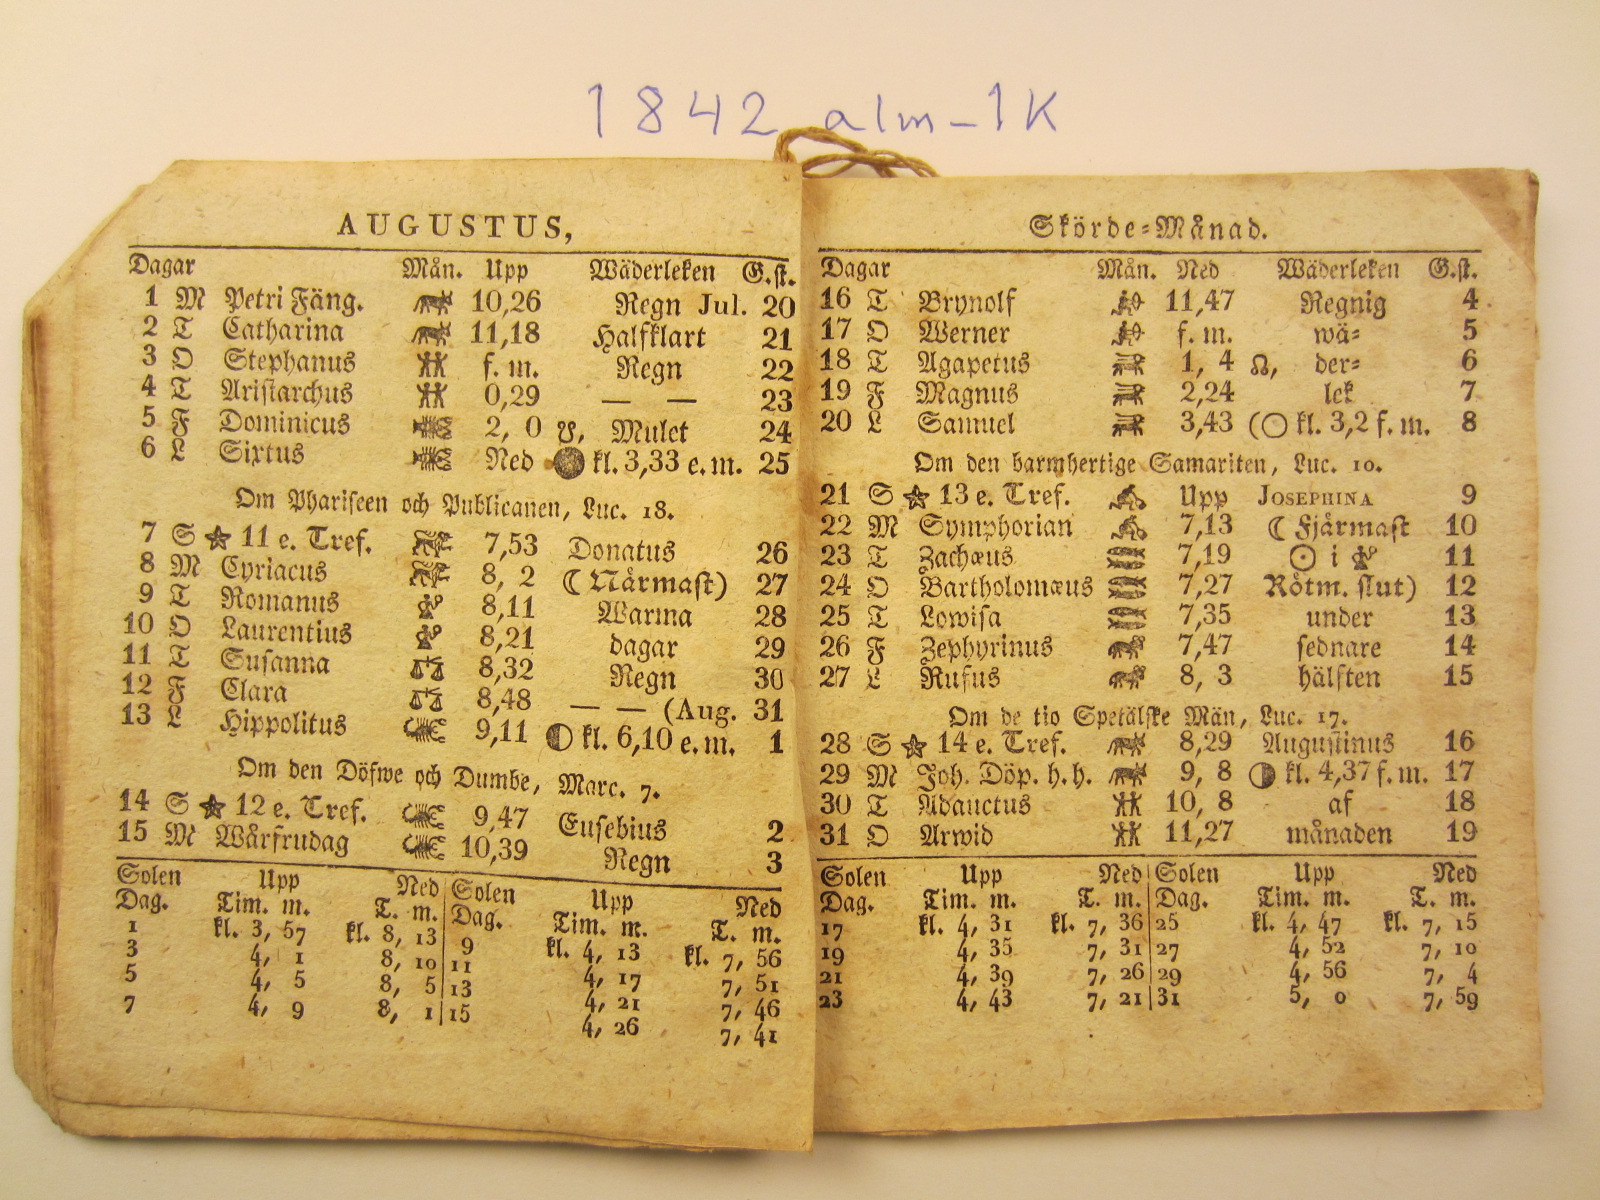 1842 alm-1K
AUGUSTUS,
Dagar Mån. Upp Wäderleken G.st.
1 M Petri Fäng. 10,26 Regn Jul. 20
2 T Catharina 11,18 Halfklart 21
3 O Stephanus f. m. Regn 22
4 T Aristarchus 0,29 — — 23
5 F Dominicus 2, 0 ☋, Mulet 24
6 L Sixtus Ned ● kl. 3,33 e. m. 25
Om Phariseen och Publicanen, Luc. 18.
7 S ☆ 11 e. Tref. 7,53 Donatus 26
8 M Cyriacus 8, 2 ☾ Närmast) 27
9 T Romanus 8,11 Warma 28
10 O Laurentius 8,21 dagar 29
11 T Susanna 8,32 Regn 30
12 F Clara 8,48 — — (Aug. 31
13 L Hippolitus 9,11 ◐ kl. 6,10 e. m. 1
Om den Döfwe och Dumbe, Marc. 7.
14 S ☆ 12 e. Tref. 9,47 Eusebius 2
15 M Wårfrudag 10,39 Regn 3
Solen Upp Ned Solen Upp Ned
Dag. Tim. m. T. m. Dag. Tim. m. T. m.
1 kl. 3, 57 kl. 8, 13 9 kl. 4, 13 kl. 7, 56
3 4, 1 8, 10 11 4, 17 7, 51
5 4, 5 8, 5 13 4, 21 7, 46
7 4, 9 8, 1 15 4, 26 7, 41
Skörde-Månad.
Dagar Mån. Ned Wäderleken G.st.
16 T Brynolf 11,47 Regnig 4
17 O Werner f. m. wä- 5
18 T Agapetus 1, 4 ☊, der- 6
19 F Magnus 2,24 lek 7
20 L Samuel 3,43 (○ kl. 3,2 f. m. 8
Om den barmhertige Samariten, Luc. 10.
21 S ☆ 13 e. Tref. Upp JOSEPHINA 9
22 M Symphorian 7,13 ☾ Fjärmast 10
23 T Zachæus 7,19 ☉ i ♍ 11
24 O Bartholomæus 7,27 Rötm. slut) 12
25 T Lowisa 7,35 under 13
26 F Zephyrinus 7,47 sednare 14
27 L Rufus 8, 3 hälften 15
Om de tio Spetälske Män, Luc. 17.
28 S ☆ 14 e. Tref. 8,29 Augustinus 16
29 M Joh. Döp. h. h. 9, 8 ◑ kl. 4,37 f. m. 17
30 T Adauctus 10, 8 af 18
31 O Arwid 11,27 månaden 19
Solen Upp Ned Solen Upp Ned
Dag. Tim. m. T. m. Dag. Tim. m. T. m.
17 kl. 4, 31 kl. 7, 36 25 kl. 4, 47 kl. 7, 15
19 4, 35 7, 31 27 4, 52 7, 10
21 4, 39 7, 26 29 4, 56 7, 4
23 4, 43 7, 21 31 5, 0 7, 59